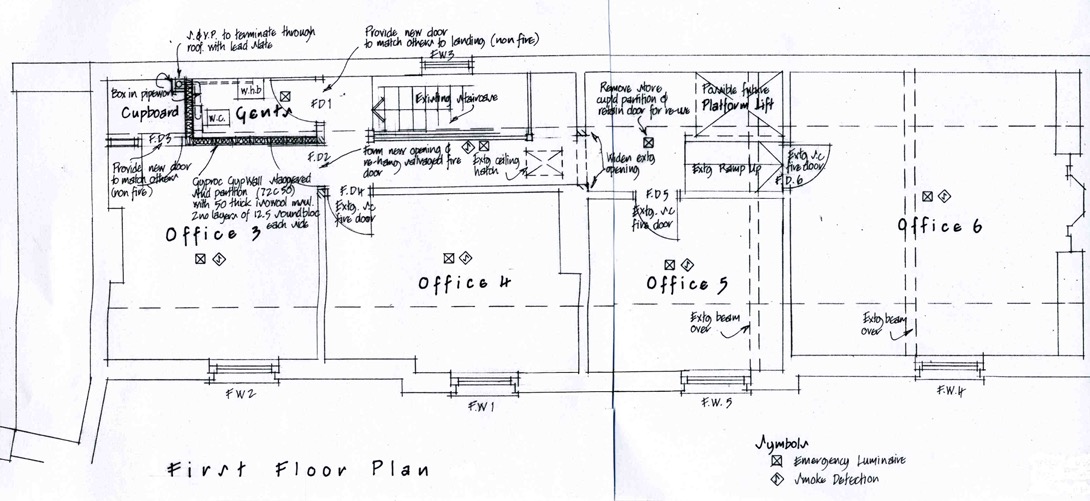 S.&V.P. to terminate through
roof with lead slate
Provide new door
to match others to landing (non fire)
F.W3
Box in pipework
Cupboard
w.h.b
w.c.
Gents
F.D1
Existing staircase
Remove store
cupd partition &
retain door for re-use
Possible future
Platform Lift
F.D3
F.D2
Form new opening &
re-hang salvaged fire
door
Extg ceiling
hatch
Widen extg
opening
Extg Ramp up
Extg s/c
fire door
F.D.6
Provide new door
to match others
(non fire)
Gyproc GypWall staggered
stud partition (72C50)
with 50 thick isowool insul.
2no layers of 12.5 soundbloc
each side
F.D4
Extg. s/c
fire door
F.D5
Extg. s/c
fire door
Office 3
Office 4
Office 5
Office 6
Extg beam
over
Extg beam
over
F.W2
F.W1
F.W.5
F.W.4
First Floor Plan
Symbols
Emergency Luminaire
Smoke Detection